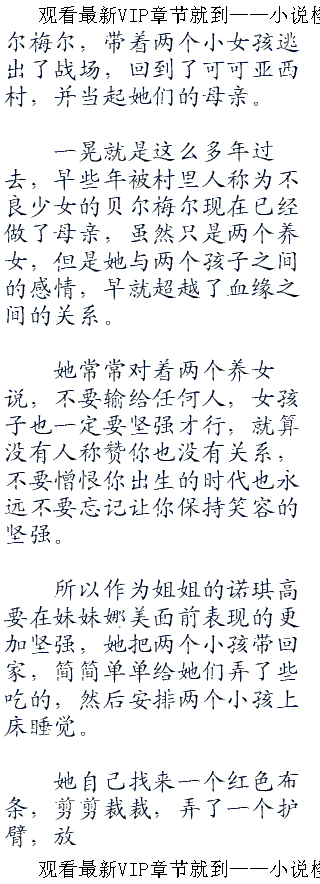 观看最新VIP章节就到——小说
尔梅尔，带着两个小女孩逃
出了战场，回到了可可亚西
村，并当起她们的母亲。
一晃就是这么多年过
去，早些年被村里人称为不
良少女的贝尔梅尔现在已经
做了母亲，虽然只是两个养
女，但是她与两个孩子之间
的感情，早就超越了血缘之
间的关系。
她常常对着两个养女
说，不要输给任何人，女孩
子也一定要坚强才行，就算
没有人称赞你也没有关系，
不要憎恨你出生的时代也永
远不要忘记让你保持笑容的
坚强。
所以作为姐姐的诺琪高
要在妹妹娜美面前表现的更
加坚强，她把两个小孩带回
家，简简单单给她们弄了些
吃的，然后安排两个小孩上
床睡觉。
她自己找来一个红色布
条，剪剪裁裁，弄了一个护
臂，放
观看最新VIP章节就到——小说